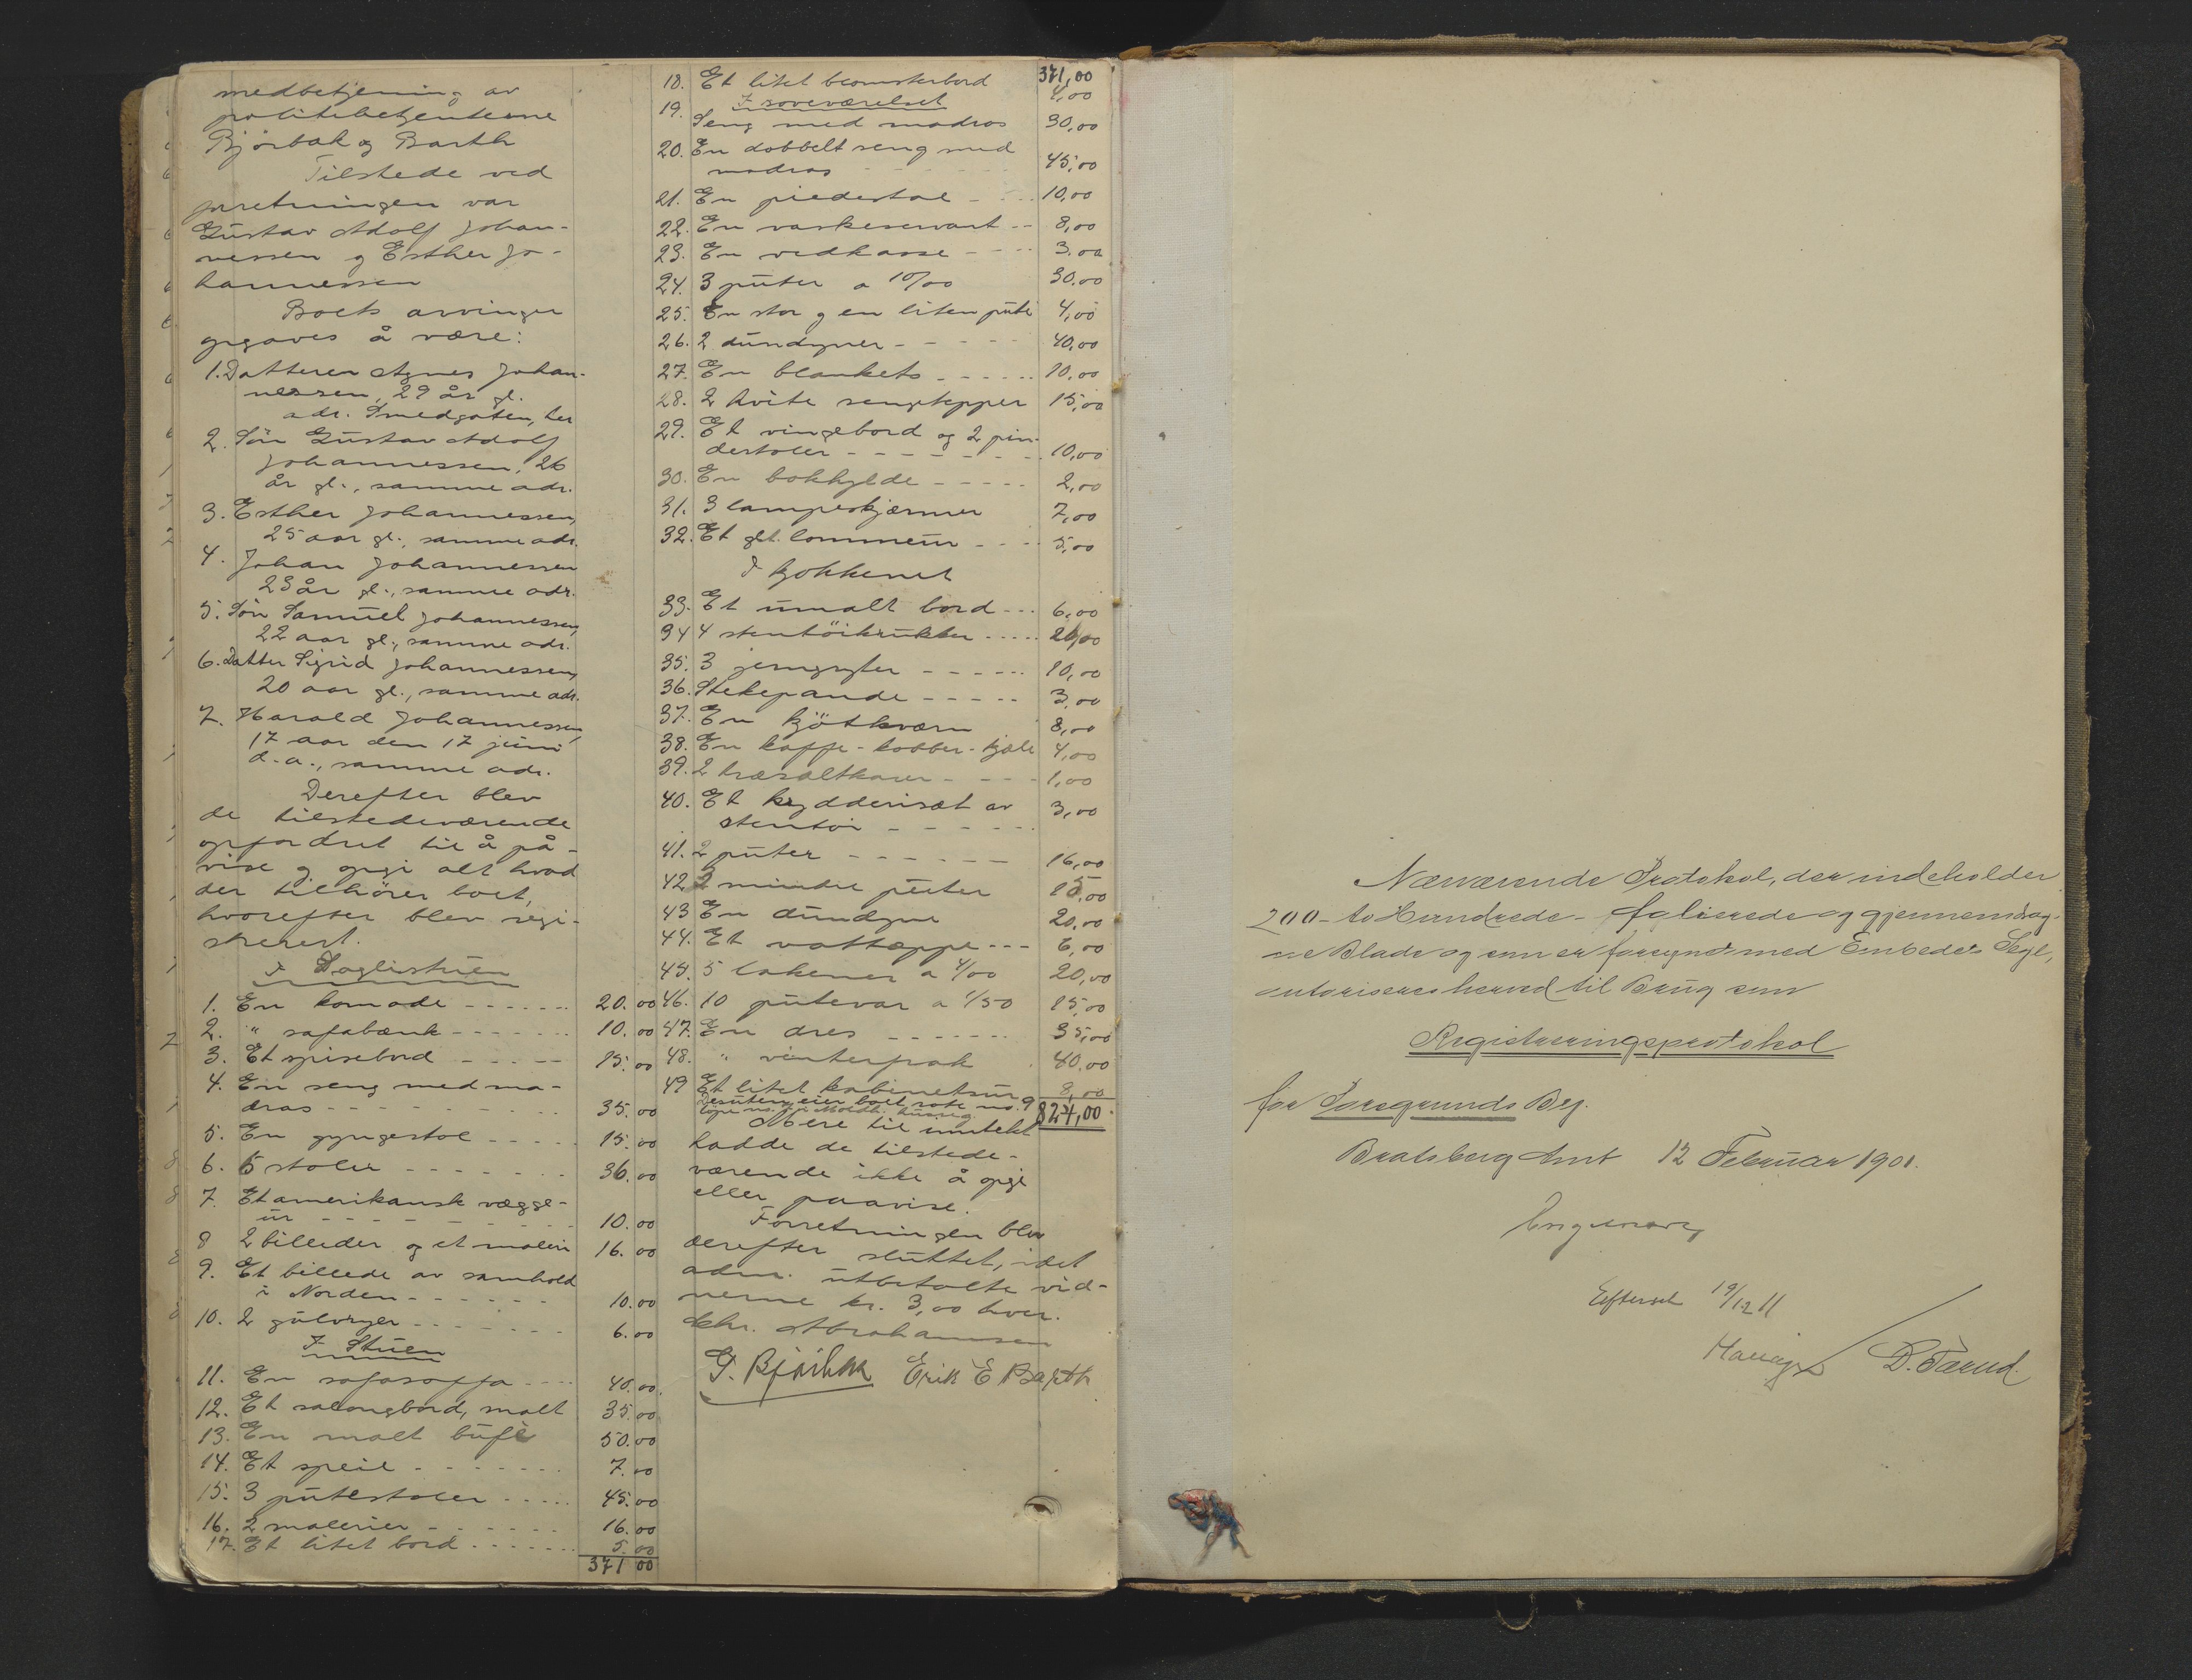 medbetjening av
politibetjenterne
Bjørbak og Barth
Tilstede ved
forretningen var
Gustav Adolf Johan-
nessen og Esther Jo-
hannessen
Boets arvinger
opgaves å være:
1. Datteren Agnes Johan-
nessen, 29 år gl.
adr. Smedgaten, her
2. Søn Gustav Adolf
Johannessen, 26
år gl., samme adr.
3. Esther Johannessen,
25 aar gl., samme adr.
4. Johan Johannessen
23 år gl., samme adr.
5. Søn Samuel Johannessen,
22 aar gl., samme adr.
6. Datter Sigrid Johannessen,
20 aar gl., samme adr.
7. Harald Johannessen,
17 aar den 17 juni
d.a., samme adr.
Derefter blev
de tilstedeværende
opfordret til å på-
vise og opgi alt hvad
der tilhører boet,
hvorefter blev regi-
strerert.
I Dagligstuen
1. En komode 20.00
2. " sofabænk 10.00
3. Et spisebord 15.00
4. En seng med ma-
dras 35.00
5. En gyngestol 15.00
6. 6 stoler 36.00
7. Et amerikansk vægge-
ur 10.00
8 2 billeder og et maleri 16.00
9. Et billede av samhold
i Norden 10.00
10. 2 gulvryer 6.00
I Stuen
11. En sofasoffa 40.00
12. Et salongbord, malt 35.00
13. En malt bufé 50.00
14. Et speil 7.00
15. 3 putestoler 45.00
16. 2 malerier 16.00
17. Et litet bord 5.00
371 00
371,00
18. Et litet blomsterbord 4,00
I soveværelset
19. Seng med madras 30,00
20. En dobbelt seng med
madras 45,00
21. En piedestal 10,00
22. En vaskeservant 8,00
23. En vedkasse 3.00
24. 3 puter a 10/00 30.00
25. En stor og en liten pute 4,00
26. 2 dundyner 40,00
27. En blankets 10,00
28. 2 hvite sengtepper 15,00
29. Et vingebord og 2 pin-
destoler 10,00
30. En bokhylde 2,00
31. 3 lampeskjærmer 7,00
32. Et glt. lommeur 5,00
I kjøkkenet
33. Et umalt bord 6,00
34 4 stentøikrukker 20,00
35. 3 jerngryter 10,00
36. Stekepande 3,00
37. En kjøtkværn 8,00
38. En kaffe-kobber-kjele 4,00
39. 2 træsaltkarer 1,00
40. Et krydderisæt av
stentøi 3,00
41. 2 puter 16,00
42. 2 mindre puter 10,00
43 En dundyne 20,00
44. Et vattæppe 6,00
45. 5 lakener a 4/00 20,00
46. 10 putevar a 1/50 15,00
47. En dres 35,00
48. " vinterfrak 40,00
49 Et litet kabinetsur 8,00
Desuten eier boet rote no. 9
824,00
Mere til inntekt
hadde de tilstede-
værende ikke å opgi
eller paavise.
Forretningen blev
derefter sluttet, idet
adm. utbetalte vid-
nerne kr. 3,00 hver.
Chr. Abrahamsen
G. Bjørbak Erik E Barth
Nærværende Protokol, der indeholder
200 - to Hundrede - folierede og gjennemdrag-
ne Blade og som er forsynet med Embedets Segl,
autoriseres herved til Brug som
Registreringsprotokol
for Porsgrunds By.
Bratsberg Amt 12 Februar 1901.
Eftersét 19/12 11